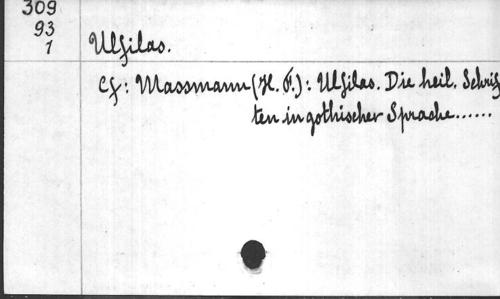 309
93
1
Ulfilas.
Cf: Massmann (H. F.): Ulfilas. Die heil. Schrif
ten in gothischer Sprache......